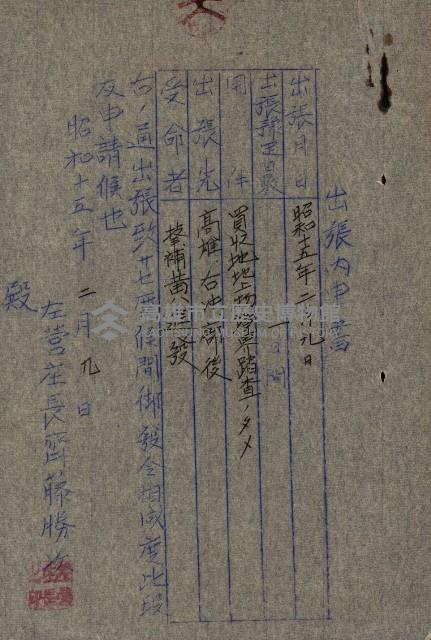 出張内申書
出張月日 昭和十五年二月九日
出張豫定日數 一日間
用件 買收地地上物件踏查ノタメ
出張先 高雄、右冲、部後
受命者 葉補黃進發
右ノ通出張致サセ度候間御發令相成度此段
及申請候也
昭和十五年二月九日
左營庄長齊藤勝
殿
高雄市立歷史博物館